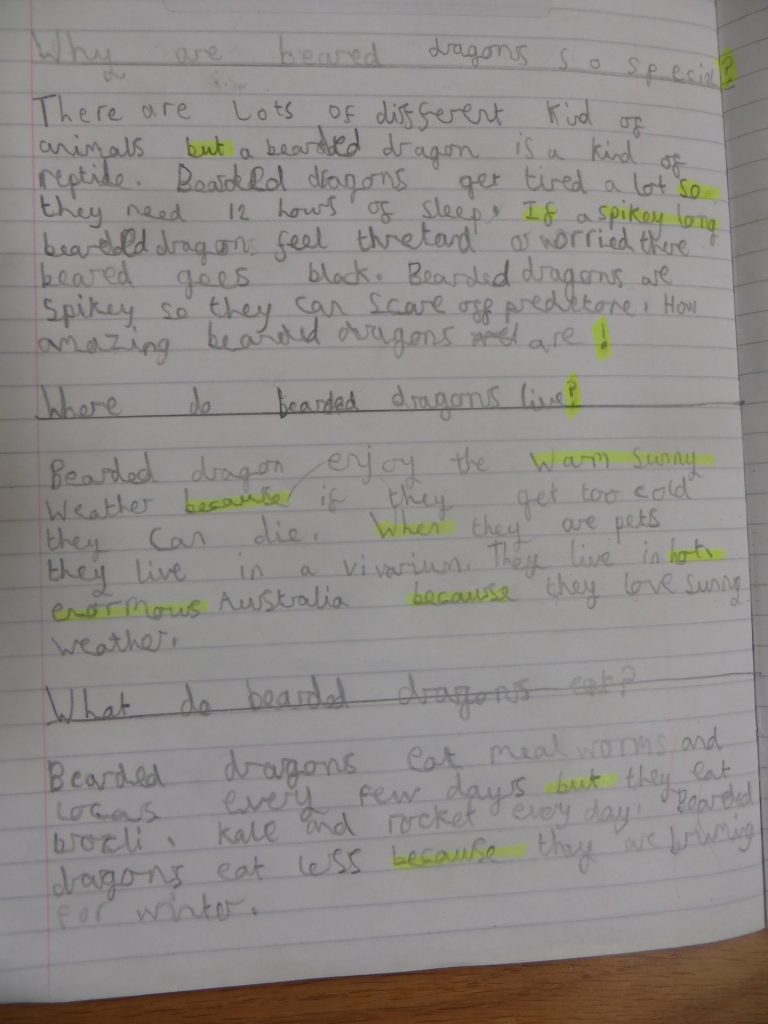 Why are beared dragons so special?
There are Lots of different kind of
animals but a bearded dragon is a kind of
reptile. Bearded dragons get tired a lot so
they need 12 hours of sleep. If a spikey long
bearded dragon feel thretard or worried there
beared goes black. Bearded dragons are
Spikey so they can scare off predetore. How
amazing bearded dragons are!
Where do bearded dragons live?
Bearded dragon enjoy the warm sunny
weather because if they get too cold
they can die. When they are pets
they live in a vivarium. They live in hot,
enormous Australia because they love sunny
weather.
What do bearded dragons eat?
Bearded dragons eat meal worms and
locas every few days but they eat
brocli, kale and rocket every day. Bearded
dragons eat less because they are
for winter.